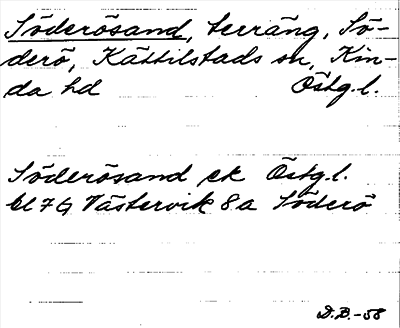 Söderösand, terräng, Sö-
derö, Kättilstads sn, Kin-
da hd Östg.l.
Söderösand ek Östg.l.
bl 7G Västervik 8a Söderö
D.B.-58